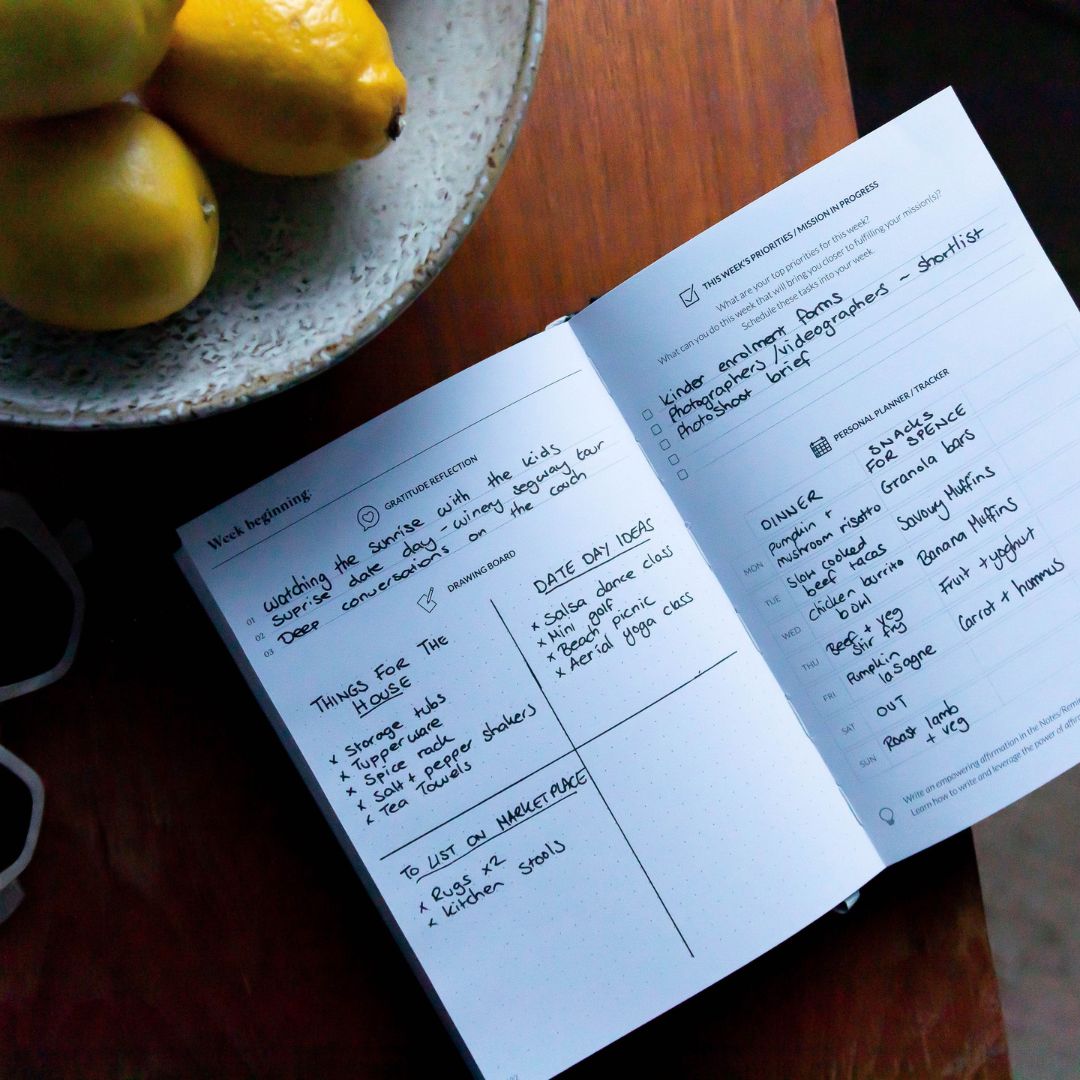 Week beginning:
GRATITUDE REFLECTION
01 watching the sunrise with the kids
02 suprise date day - winery segway tour
03 Deep conversations on the couch
DRAWING BOARD
THINGS FOR THE
HOUSE
x Storage tubs
x Tupperware
x Spice rack
x Salt + pepper shakers
x Tea Towels
DATE DAY IDEAS
x Salsa dance class
x Mini golf
x Beach picnic
x Aerial yoga class
TO LIST ON MARKETPLACE
x Rugs x2
x Kitchen stools
THIS WEEK'S PRIORITIES / MISSION IN PROGRESS
What are your top priorities for this week?
What can you do this week that will bring you closer to fulfilling your mission(s)?
Schedule these tasks into your week.
Kinder enrolment forms
Photographers /videographers - shortlist
Photoshoot brief
PERSONAL PLANNER / TRACKER
DINNER
SNACKS
FOR SPENCE
MON
Pumpkin +
mushroom risotto
Granola bars
TUE
Slow cooked
beef tacos
Savoury Muffins
WED
Chicken burrito
bowl
Banana Muffins
THU
Beef + veg
stir fry
Fruit + yoghut
FRI
Pumpkin
lasagne
Carrot + hummus
SAT
OUT
SUN
Roast lamb
+ veg
Write an empowering affirmation in the Notes/Remin
Learn how to write and leverage the power of affirm